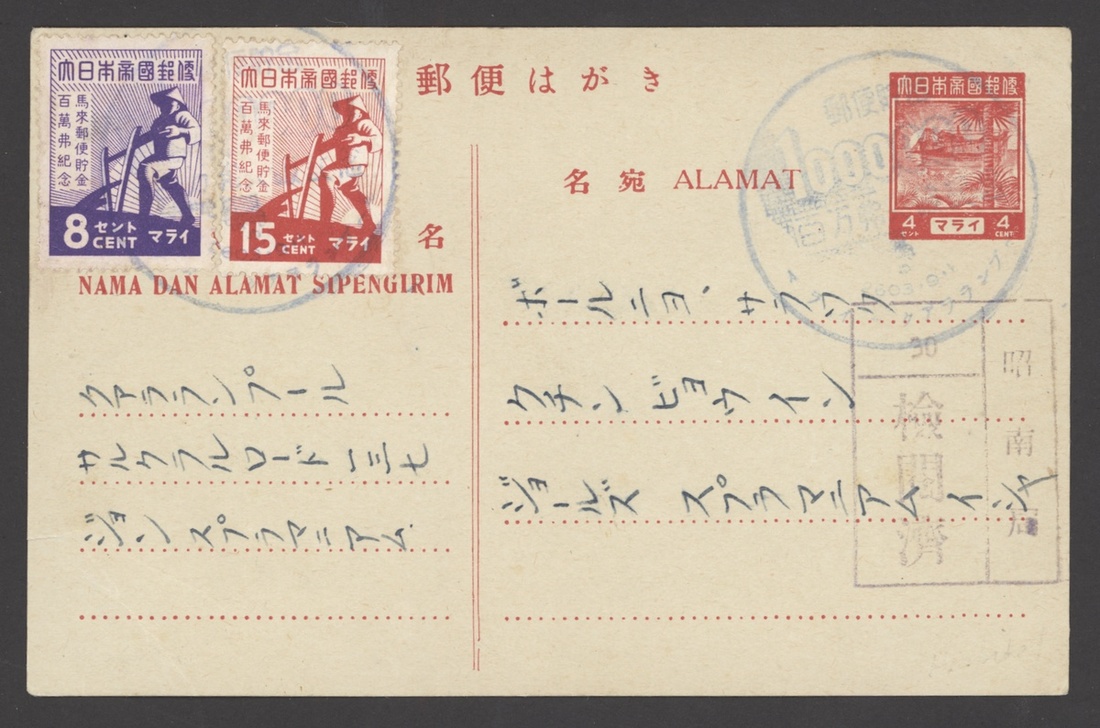 大日本帝國郵便
馬來郵便貯金
百萬弗紀念
8 セント CENT マライ
大日本帝國郵便
馬來郵便貯金
百萬弗紀念
15 セント CENT マライ
郵便はがき
大日本帝國郵便
4 セント マライ 4 CENT
名宛 ALAMAT
名
NAMA DAN ALAMAT SIPENGIRIM
ボールニヨ、サラワク
クチン ビョウイン
ジョールズ スプラマニアム イシャ
クアラランプール
サルクラルロード 一三七
ジョン スプラマニアム
昭南局
30
検閲濟